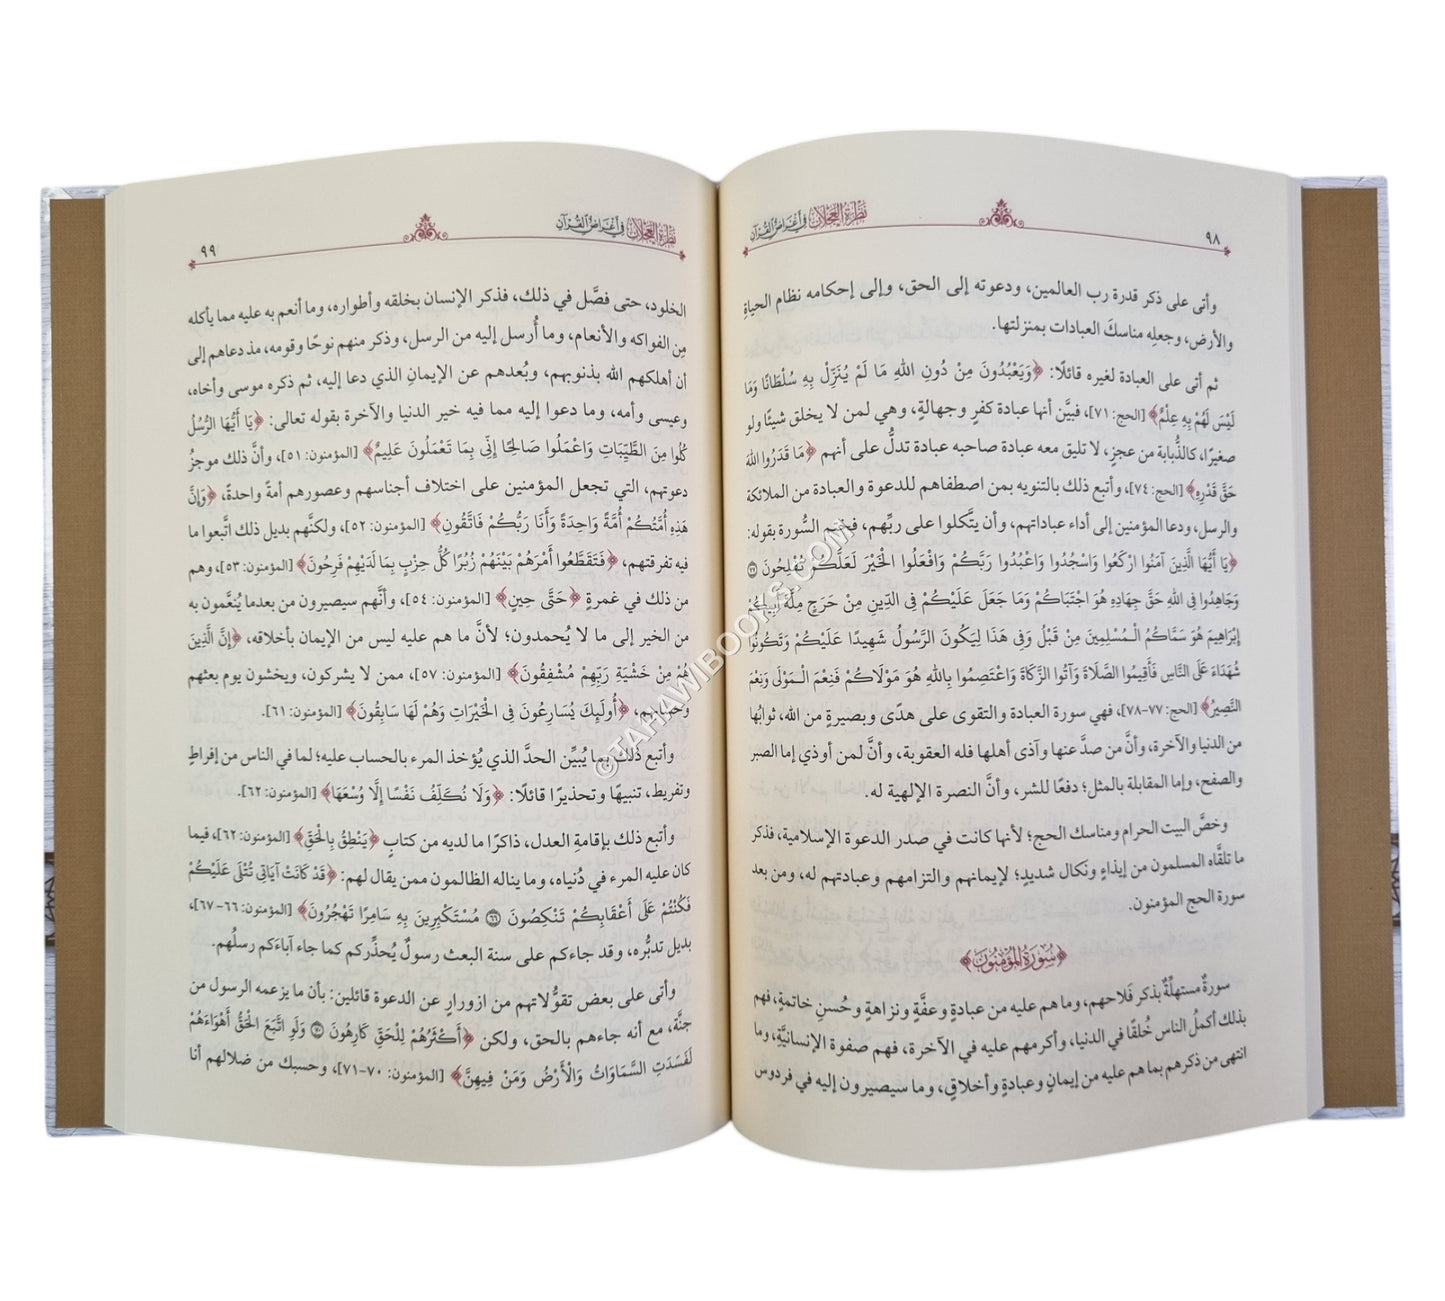 ٩٨
نظرة العجلان في أغراض القرآن
وأتى على ذكر قدرة رب العالمين، ودعوته إلى الحق، وإلى إحكامه نظام الحياة
والأرض، وجعلِه مناسكَ العبادات بمنزلتها.
ثم أتى على العبادة لغيره قائلًا: ﴿وَيَعْبُدُونَ مِنْ دُونِ اللهِ مَا لَمْ يُنَزِّلْ بِهِ سُلْطَانًا وَمَا
لَيْسَ لَهُمْ بِهِ عِلْمٌ﴾ [الحج: ٧١]، فبيَّن أنها عبادة كفرٍ وجهالةٍ، وهي لمن لا يخلق شيئًا ولو
صغيرًا، كالذُّبابة من عجزٍ، لا تليق معه عبادة صاحبه عبادة تدلُّ على أنهم ﴿مَا قَدَرُوا اللهَ
حَقَّ قَدْرِهِ﴾ [الحج: ٧٤]، وأتبع ذلك بالتنويه بمن اصطفاهم للدعوة والعبادة من الملائكة
والرسل، ودعا المؤمنين إلى أداء عباداتهم، وأن يتَّكلوا على ربِّهم، فختم السُّورة بقوله:
﴿يَا أَيُّهَا الَّذِينَ آمَنُوا ارْكَعُوا وَاسْجُدُوا وَاعْبُدُوا رَبَّكُمْ وَافْعَلُوا الْخَيْرَ لَعَلَّكُمْ تُفْلِحُونَ ٧٧
وَجَاهِدُوا فِي اللهِ حَقَّ جِهَادِهِ هُوَ اجْتَبَاكُمْ وَمَا جَعَلَ عَلَيْكُمْ فِي الدِّينِ مِنْ حَرَجٍ مِلَّةَ أَبِيكُمْ
إِبْرَاهِيمَ هُوَ سَمَّاكُمُ الْمُسْلِمِينَ مِنْ قَبْلُ وَفِي هَذَا لِيَكُونَ الرَّسُولُ شَهِيدًا عَلَيْكُمْ وَتَكُونُوا
شُهَدَاءَ عَلَى النَّاسِ فَأَقِيمُوا الصَّلَاةَ وَآتُوا الزَّكَاةَ وَاعْتَصِمُوا بِاللهِ هُوَ مَوْلَاكُمْ فَنِعْمَ الْمَوْلَى وَنِعْمَ
النَّصِيرُ﴾ [الحج: ٧٧-٧٨]، فهي سورة العبادة والتقوى على هدًى وبصيرةٍ من الله، ثوابُها
من الدنيا والآخرة، وأنَّ من صدَّ عنها وآذى أهلها فله العقوبة، وأنَّ لمن أوذي إما الصبر
والصفح، وإما المقابلة بالمثل؛ دفعًا للشر، وأنَّ النصرة الإلهية له.
وخصَّ البيت الحرام ومناسك الحج؛ لأنها كانت في صدر الدعوة الإسلامية، فذكر
ما تلقَّاه المسلمون من إيذاءٍ ونَكال شديدٍ؛ لإيمانهم والتزامهم وعبادتهم له، ومن بعد
سورة الحج المؤمنون.
﴿سُورَةُ المُؤْمِنُونَ﴾
سورةٌ مستهلَّةٌ بذكر فَلاحهم، وما هم عليه من عبادةٍ وعفَّةٍ ونزاهةٍ وحُسنِ خاتمةٍ، فهم
بذلك أكملُ الناس خُلقًا في الدنيا، وأكرمهم عليه في الآخرة، فهم صفوة الإنسانيَّةِ، وما
انتهى من ذكرهم بما هم عليه من إيمانٍ وعبادةٍ وأخلاقٍ، وما سيصيرون إليه في فردوس
نظرة العجلان في أغراض القرآن
٩٩
الخلود، حتى فصَّل في ذلك، فذكر الإنسان بخلقه وأطواره، وما أنعم به عليه مما يأكله
مِن الفواكه والأنعام، وما أُرسل إليه من الرسل، وذكر منهم نوحًا وقومه، مذ دعاهم إلى
أن أهلكهم الله بذنوبهم، وبُعدهم عن الإيمانِ الذي دعا إليه، ثم ذكره موسى وأخاه،
وعيسى وأمه، وما دعوا إليه مما فيه خير الدنيا والآخرة بقوله تعالى: ﴿يَا أَيُّهَا الرُّسُلُ
كُلُوا مِنَ الطَّيِّبَاتِ وَاعْمَلُوا صَالِحًا إِنِّي بِمَا تَعْمَلُونَ عَلِيمٌ﴾ [المؤمنون: ٥١]، وأنَّ ذلك موجزُ
دعوتهم، التي تجعل المؤمنين على اختلاف أجناسهم وعصورهم أمةً واحدةً، ﴿وَإِنَّ
هَذِهِ أُمَّتُكُمْ أُمَّةً وَاحِدَةً وَأَنَا رَبُّكُمْ فَاتَّقُونِ﴾ [المؤمنون: ٥٢]، ولكنَّهم بديل ذلك اتَّبعوا ما
فيه تفرقتهم، ﴿فَتَقَطَّعُوا أَمْرَهُمْ بَيْنَهُمْ زُبُرًا كُلُّ حِزْبٍ بِمَا لَدَيْهِمْ فَرِحُونَ﴾ [المؤمنون: ٥٣]، وهم
من ذلك في غمرةٍ ﴿حَتَّى حِينٍ﴾ [المؤمنون: ٥٤]، وأنَّهم سيصيرون من بعدما يُنعَّمون به
من الخير إلى ما لا يُحمدون؛ لأنَّ ما هم عليه ليس من الإيمان بأخلاقه، ﴿إِنَّ الَّذِينَ
هُمْ مِنْ خَشْيَةِ رَبِّهِمْ مُشْفِقُونَ﴾ [المؤمنون: ٥٧]، ممن لا يشركون، ويخشون يوم بعثهم
وحسابهم، ﴿أُولَئِكَ يُسَارِعُونَ فِي الْخَيْرَاتِ وَهُمْ لَهَا سَابِقُونَ﴾ [المؤمنون: ٦١].
وأتبع ذلك بما يُبيِّن الحدَّ الذي يُؤخذ المرء بالحساب عليه؛ لما في الناس من إفراطٍ
وتفريط، تنبيهًا وتحذيرًا قائلًا: ﴿وَلَا نُكَلِّفُ نَفْسًا إِلَّا وُسْعَهَا﴾ [المؤمنون: ٦٢].
وأتبع ذلك بإقامةِ العدل، ذاكرًا ما لديه من كتابٍ ﴿يَنْطِقُ بِالْحَقِّ﴾ [المؤمنون: ٦٢]، فيما
كان عليه المرء في دُنياه، وما يناله الظالمون ممن يقال لهم: ﴿قَدْ كَانَتْ آيَاتِي تُتْلَى عَلَيْكُمْ
فَكُنْتُمْ عَلَى أَعْقَابِكُمْ تَنْكِصُونَ ٦٦ مُسْتَكْبِرِينَ بِهِ سَامِرًا تَهْجُرُونَ﴾ [المؤمنون: ٦٦-٦٧]،
بديل تدبُّره، وقد جاءكم على سنة البعث رسولٌ يُحذِّركم كما جاء آباءَكم رسلُهم.
وأتى على بعض تقوُّلاتهم من ازورارٍ عن الدعوة قائلين: بأن ما يزعمه الرسول من
جنَّة، مع أنه جاءهم بالحق، ولكن ﴿أَكْثَرُهُمْ لِلْحَقِّ كَارِهُونَ ٧٠ وَلَوِ اتَّبَعَ الْحَقُّ أَهْوَاءَهُمْ
لَفَسَدَتِ السَّمَاوَاتُ وَالْأَرْضُ وَمَنْ فِيهِنَّ﴾ [المؤمنون: ٧٠-٧١]، وحسبك من ضلالهم أنا
© TAHAWIBOOKS.COM